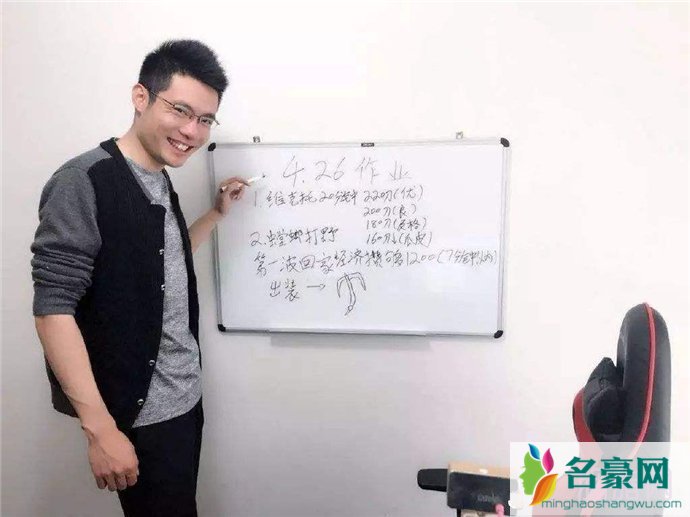 4.26 作业
1. 维克托 20分钟 220刀(优)
200刀(良)
180刀(及格)
2. 螳螂打野 160刀(瓜皮)
第一波回家经济攒够1200(7分钟内)
出装 →
名豪网
minghaoshangwu.com